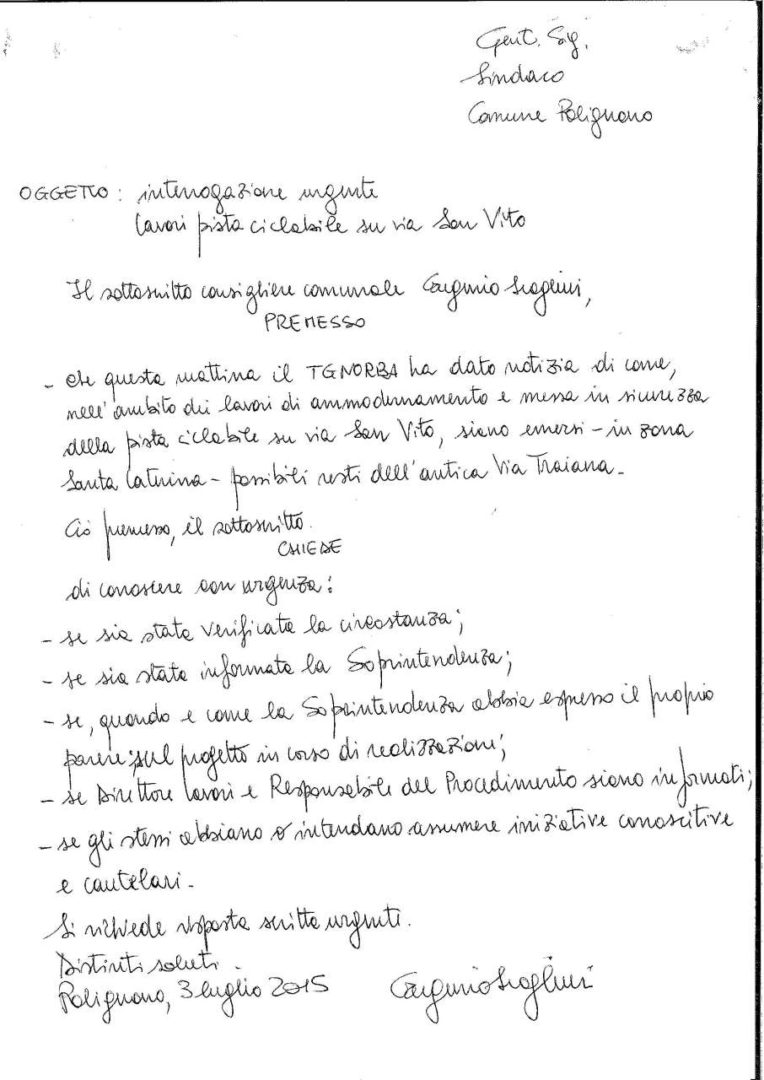 Gent. Sig.
Sindaco
Comune Polignano
OGGETTO: interrogazione urgente
lavori pista ciclabile su via San Vito
Il sottoscritto consigliere comunale Eugenio Scagliusi,
PREMESSO
- che questa mattina il TGNORBA ha dato notizia di come,
nell'ambito dei lavori di ammodernamento e messa in sicurezza
della pista ciclabile su via San Vito, siano emersi - in zona
Santa Caterina - possibili resti dell'antica Via Traiana.
Ciò premesso, il sottoscritto
CHIEDE
di conoscere con urgenza:
- se sia stata verificata la circostanza;
- se sia stata informata la Soprintendenza;
- se, quando e come la Soprintendenza abbia espresso il proprio
parere sul progetto in corso di realizzazione;
- se Direttore lavori e Responsabile del Procedimento siano informati;
- se gli stessi abbiano o intendano assumere iniziative conoscitive
e cautelari.
Si richiede risposta scritta urgente.
Distinti saluti.
Polignano, 3 luglio 2015 Eugenio Scagliusi